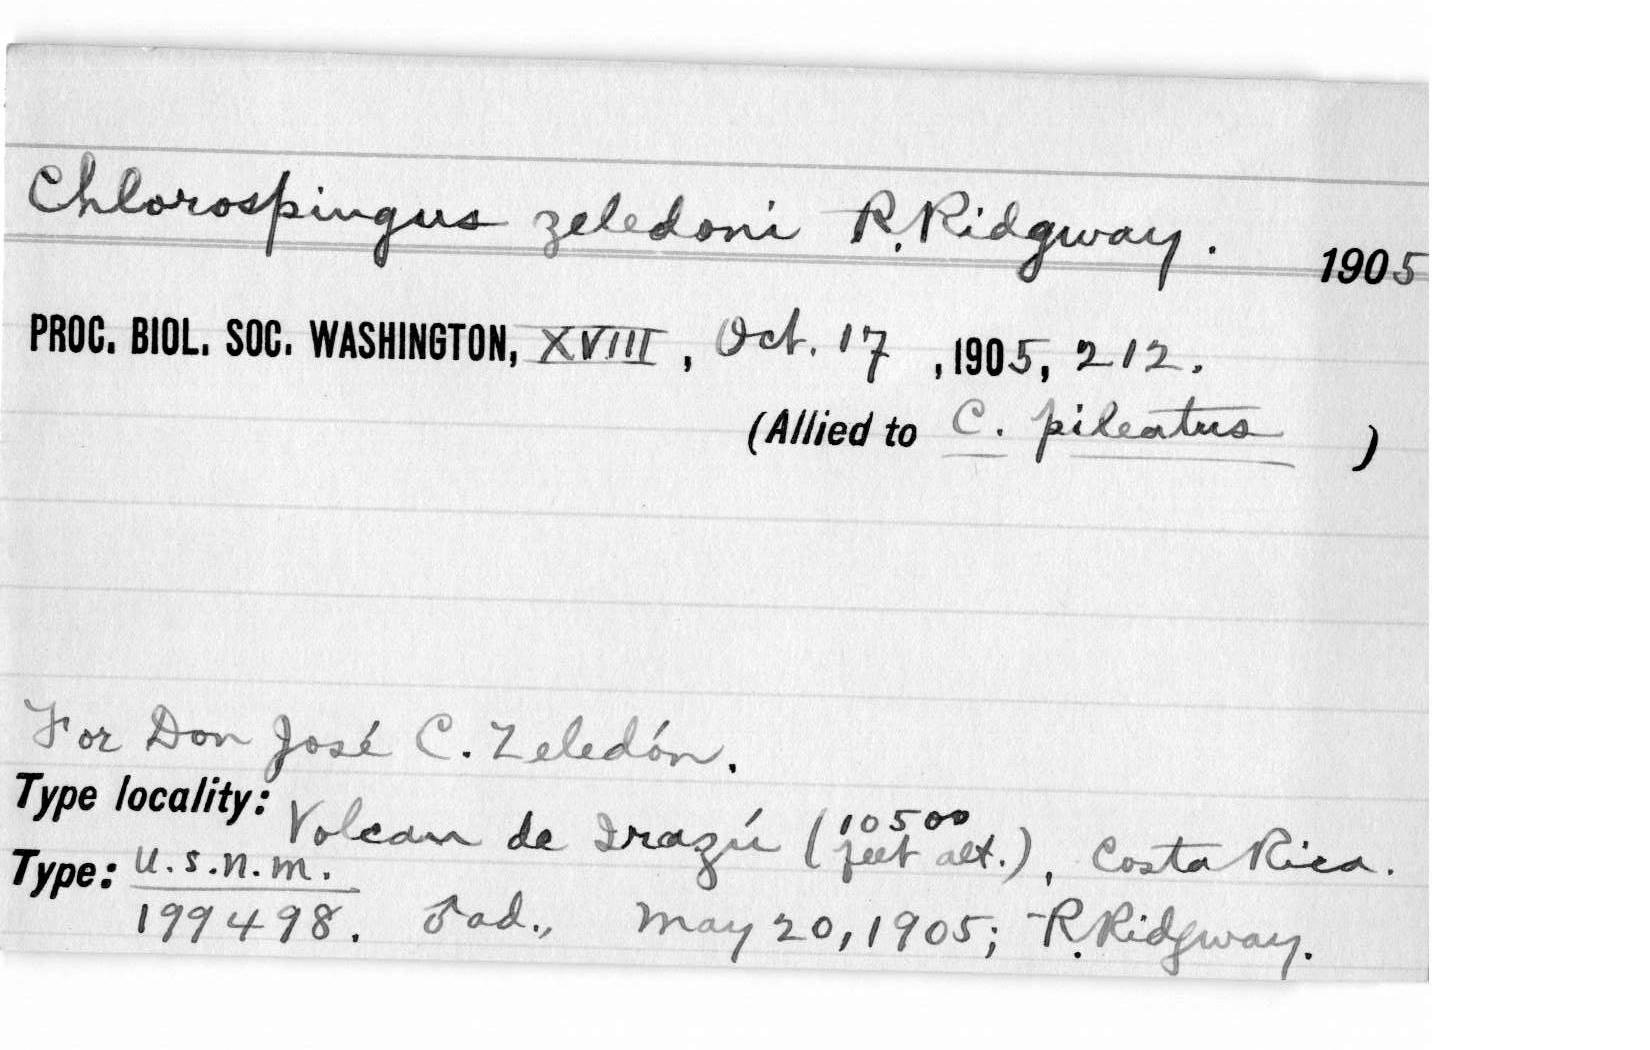 Chlorospingus zeledoni R. Ridgway.
1905
PROC. BIOL. SOC. WASHINGTON, XVIII, Oct. 17, 1905, 212.
(Allied to C. pileatus )
For Don José C. Zeledón.
Type locality: Volcan de Irazú (10500 feet alt.), Costa Rica.
Type: U.S.N.M. 199498. ♂ ad., May 20, 1905; R. Ridgway.